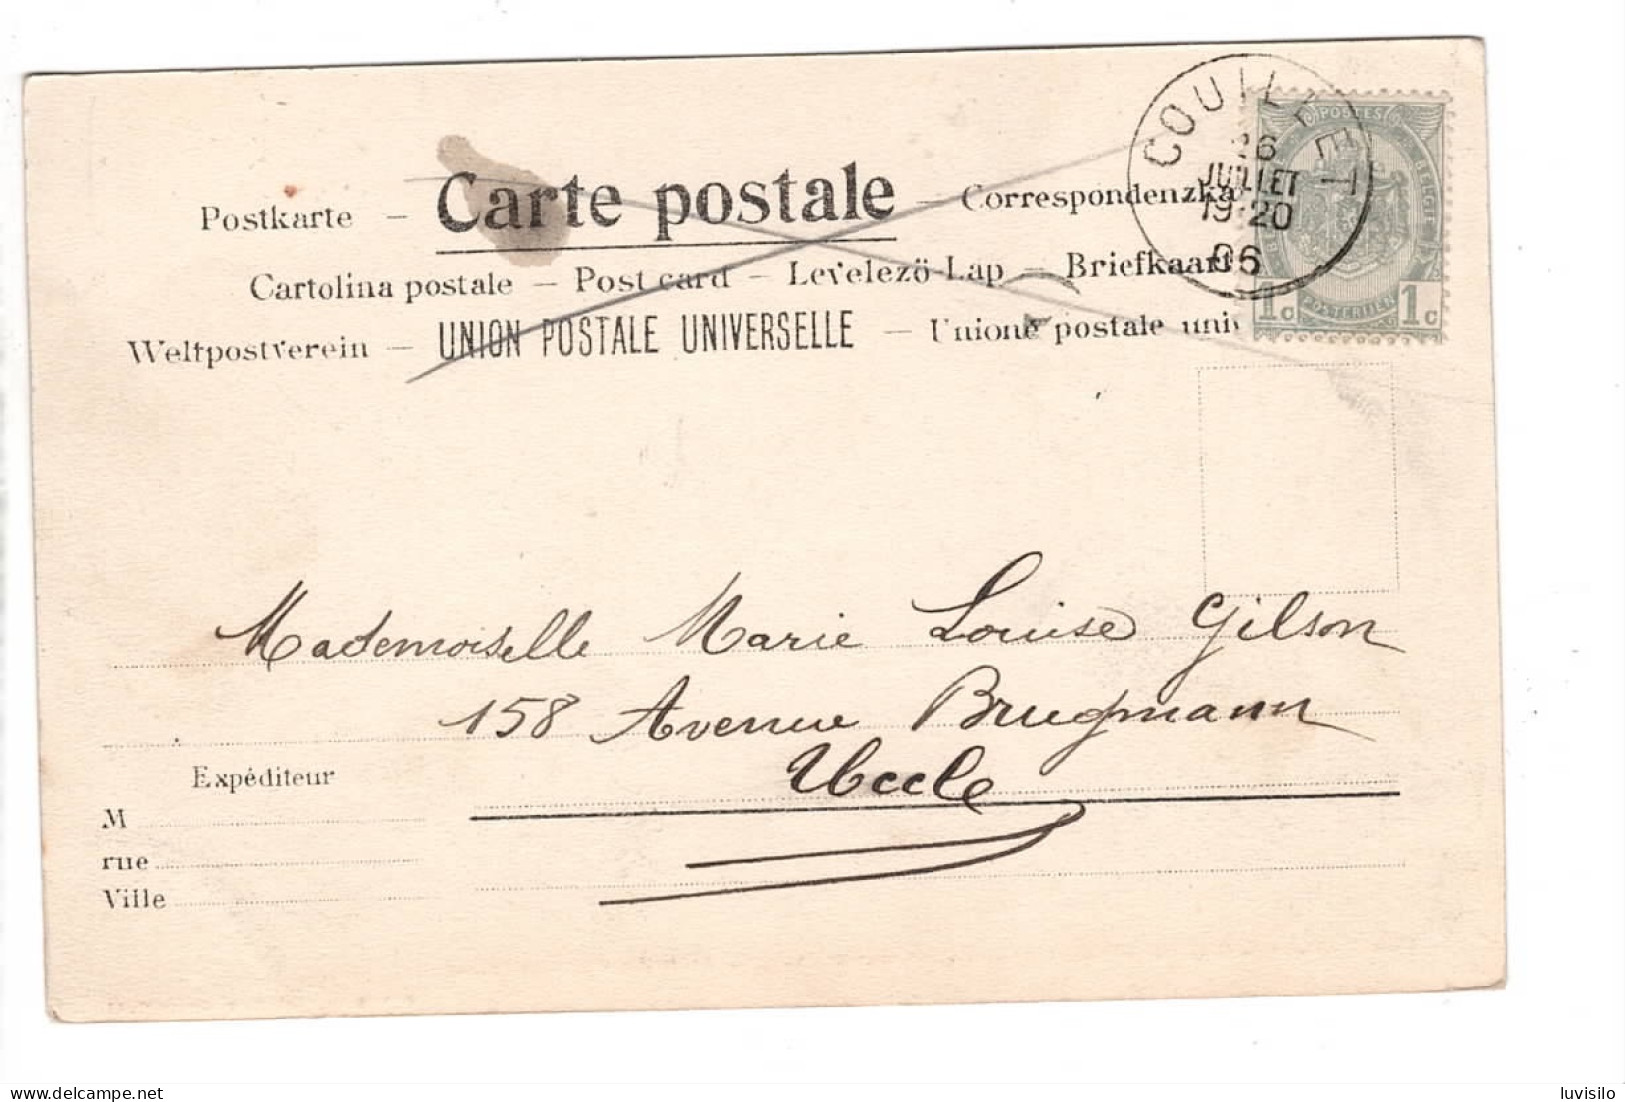 COUILLET
26
JUILLET -1
19-20
06
POSTES
BELGIQUE
BELGIE
POSTERIJEN
1c 1c
Postkarte - Carte postale - Correspondenzka
Cartolina postale - Post card - Levelezö-Lap - Briefkaart
Weltpostverein - UNION POSTALE UNIVERSELLE - Unione postale univ
Mademoiselle Marie Louise Gilson
158 Avenue Brugmann
Uccle
Expéditeur
M
rue
Ville
delcampe.net
luvisilo